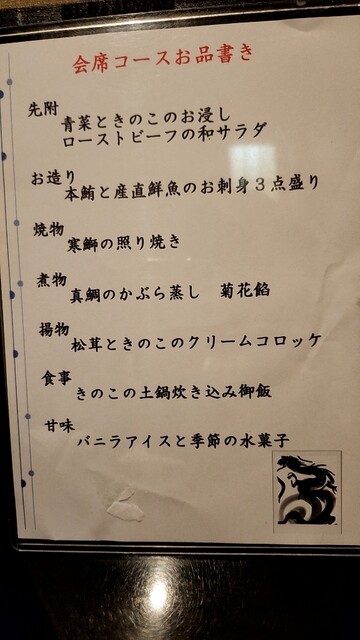 会席コースお品書き
先附
青菜ときのこのお浸し
ローストビーフの和サラダ
お造り
本鮪と産直鮮魚のお刺身３点盛り
焼物
寒鰤の照り焼き
煮物
真鯛のかぶら蒸し　菊花餡
揚物
松茸ときのこのクリームコロッケ
食事
きのこの土鍋炊き込み御飯
甘味
バニラアイスと季節の水菓子